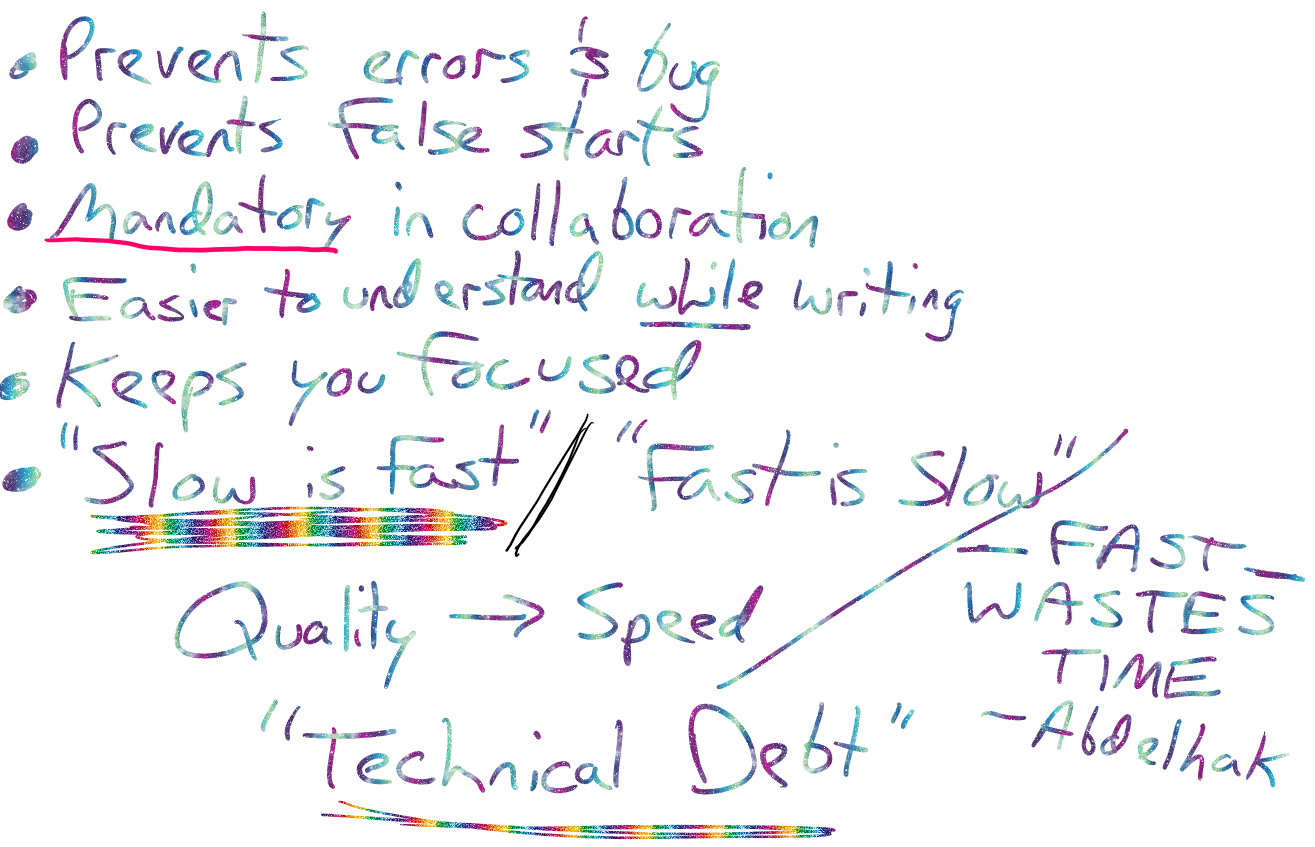 • Prevents errors & bug
• Prevents false starts
• Mandatory in collaboration
• Easier to understand while writing
• Keeps you focused
• "Slow is fast" // "Fast is slow"
Quality → Speed
"Technical Debt"
— FAST —
WASTES
TIME
~ Abdelhak